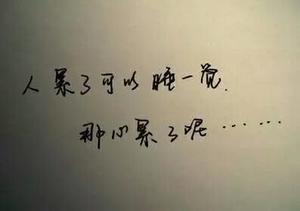 人累了可以睡一觉.
那心累了呢……